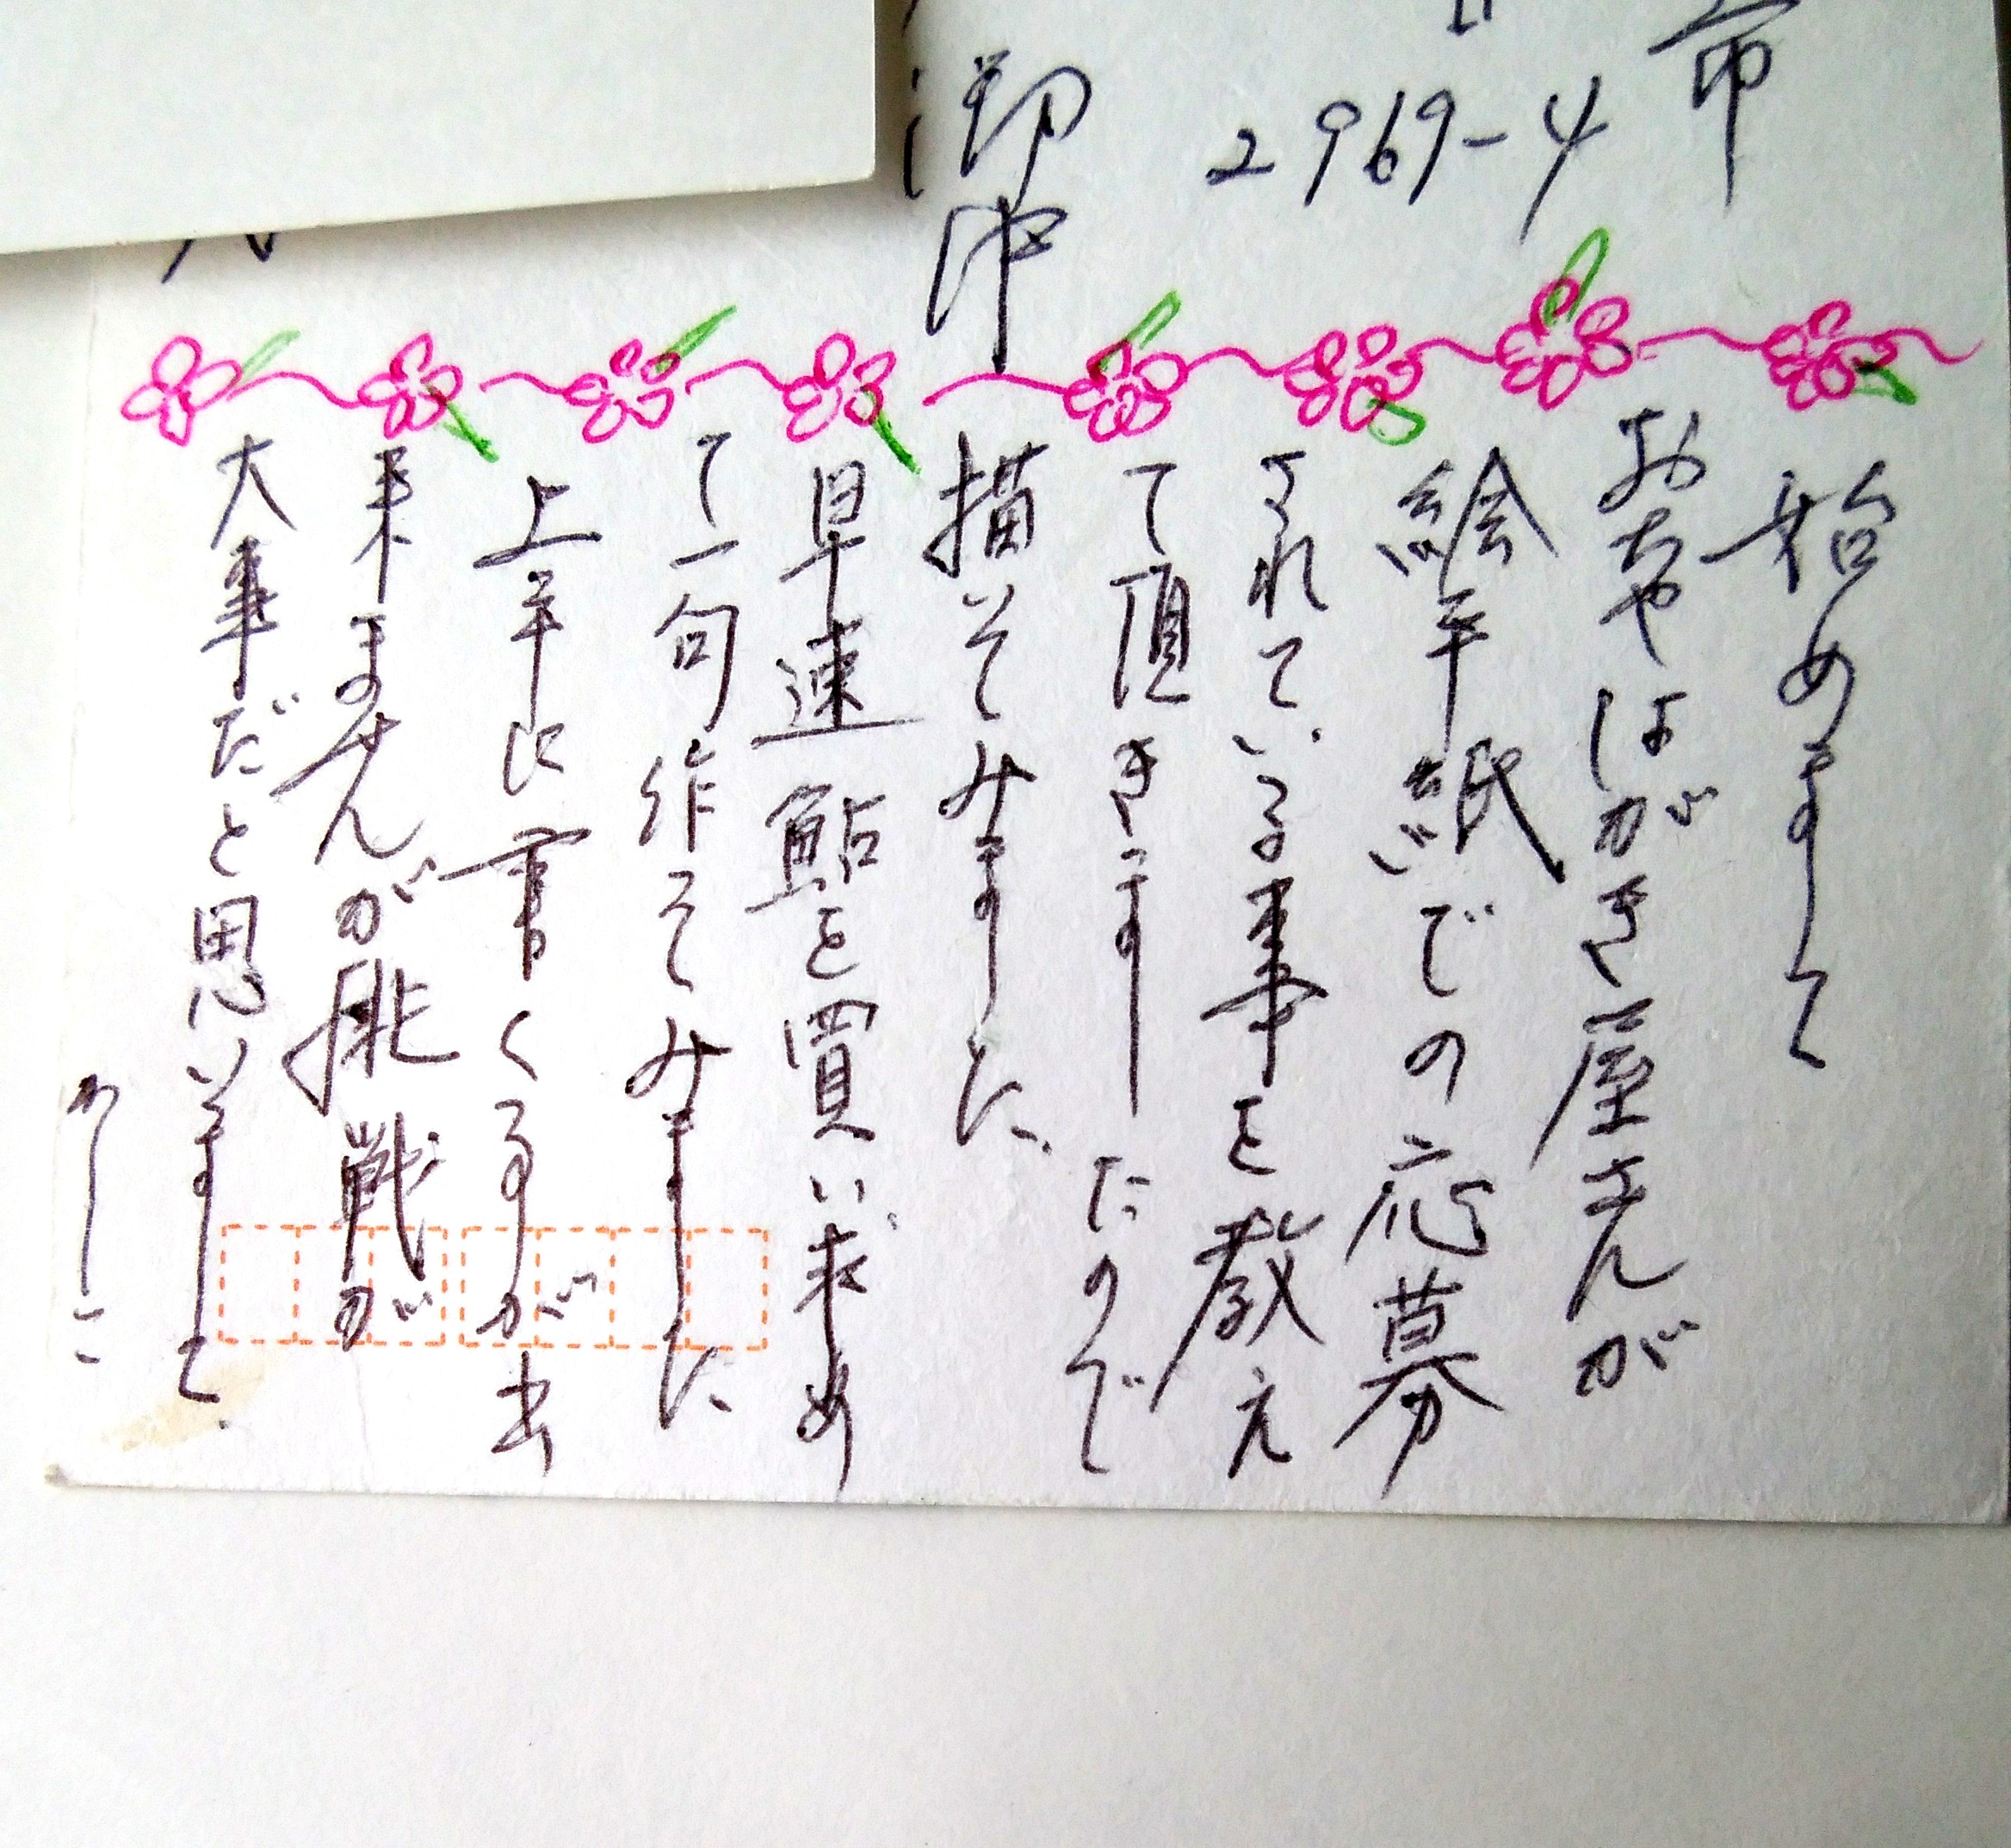 市
2969-4
御中
始めまして
おちやはがき屋さんが
絵手紙での応募
されている事を教え
て頂きましたので
描いてみました。
早速鮎を買い求め
て一句作ってみました
上手に書く事が出
来ませんが挑戦が
大事だと思いまして。
かしこ